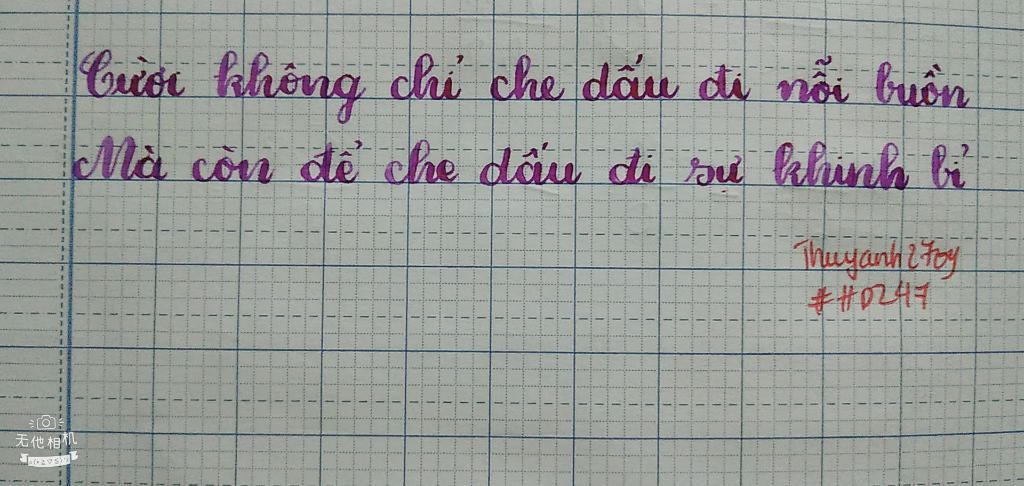 Cười không chỉ che dấu đi nỗi buồn
Mà còn để che dấu đi sự khinh bỉ
Thuyanh2709
##D247
无他相机